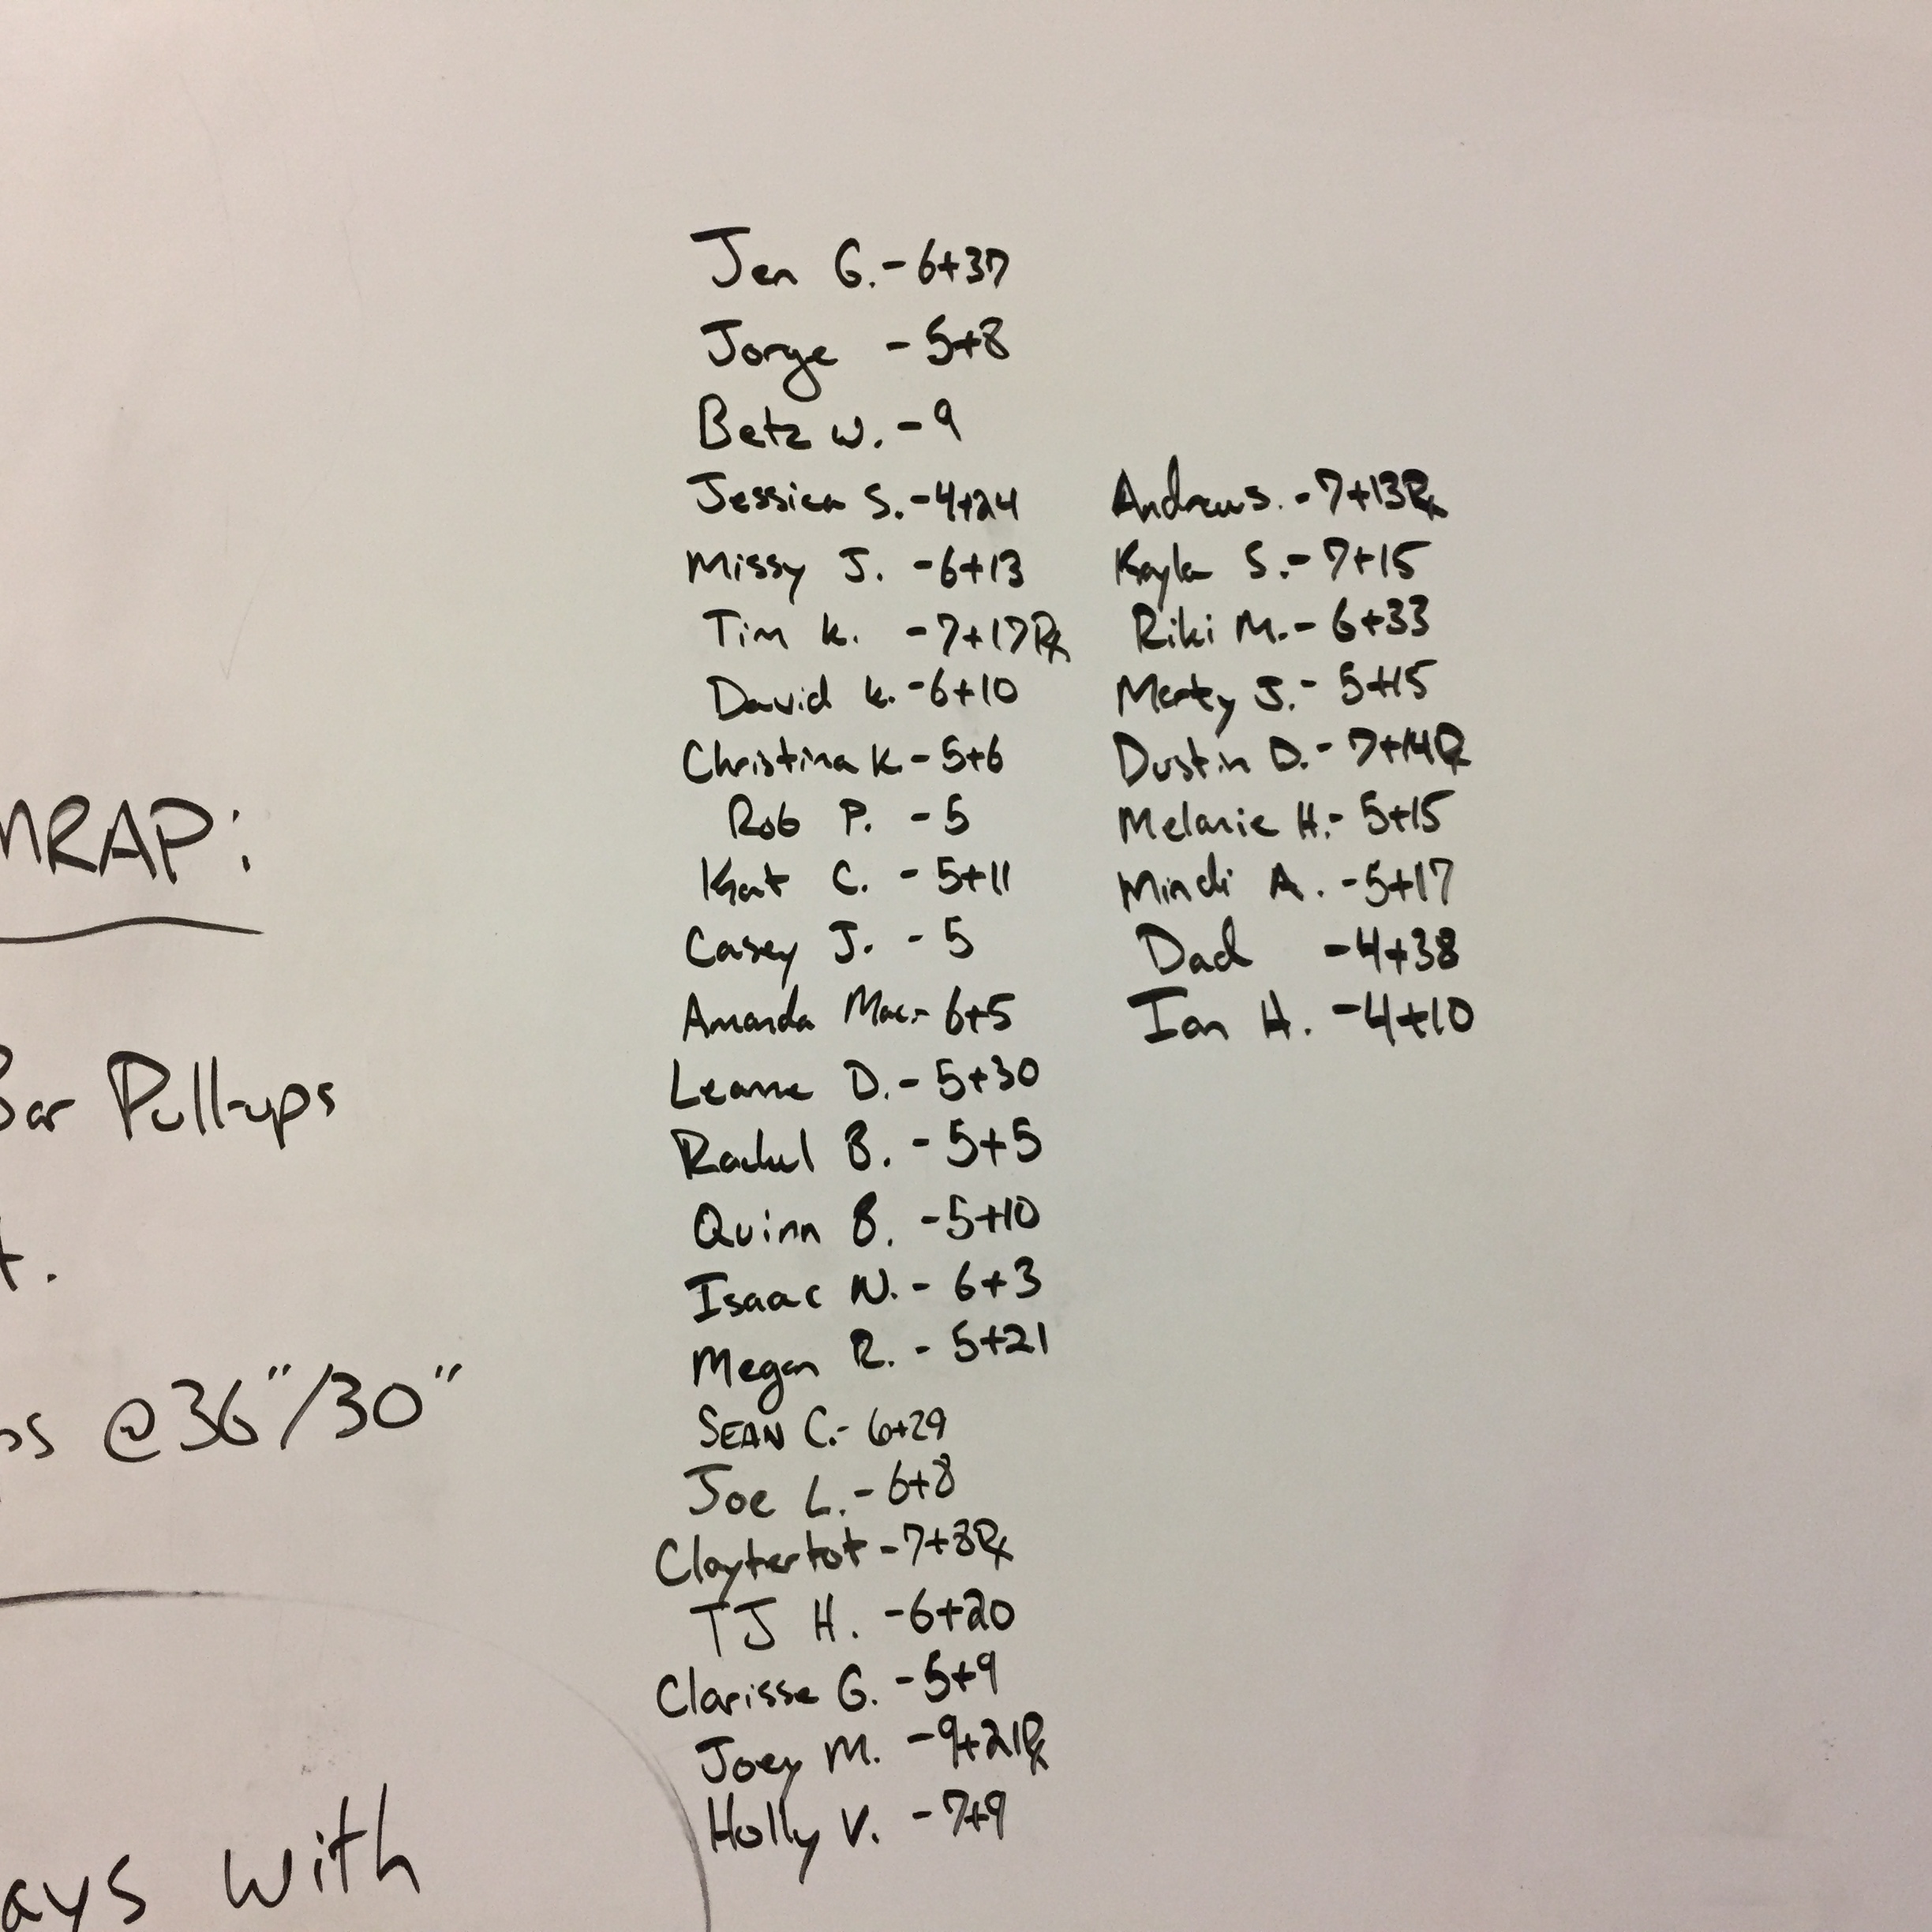 MRAP:
Bar Pull-ups
t.
ps @36"/30"
ays with
Jen G. - 6+37
Jorge - 5+8
Betz W. - 9
Jessica S. - 4+24
Missy J. - 6+13
Tim K. - 7+17 Rx
David K. - 6+10
Christina K. - 5+6
Rob P. - 5
Kat C. - 5+11
Casey J. - 5
Amanda Mac. - 6+5
Leanne D. - 5+30
Rachel B. - 5+5
Quinn B. - 5+10
Isaac N. - 6+3
Megan R. - 5+21
SEAN C. - 6+29
Joe L. - 6+8
Claytertot - 7+8 Rx
TJ H. - 6+20
Clarisse G. - 5+9
Joey M. - 9+21 Rx
Holly V. - 7+9
Andrew S. - 7+13 Rx
Kayla S. - 7+15
Riki M. - 6+33
J. - 5+15
Dustin D. - 7+14 Rx
Melanie H. - 5+15
Mindi A. - 5+17
Dad - 4+38
Ian H. - 4+10